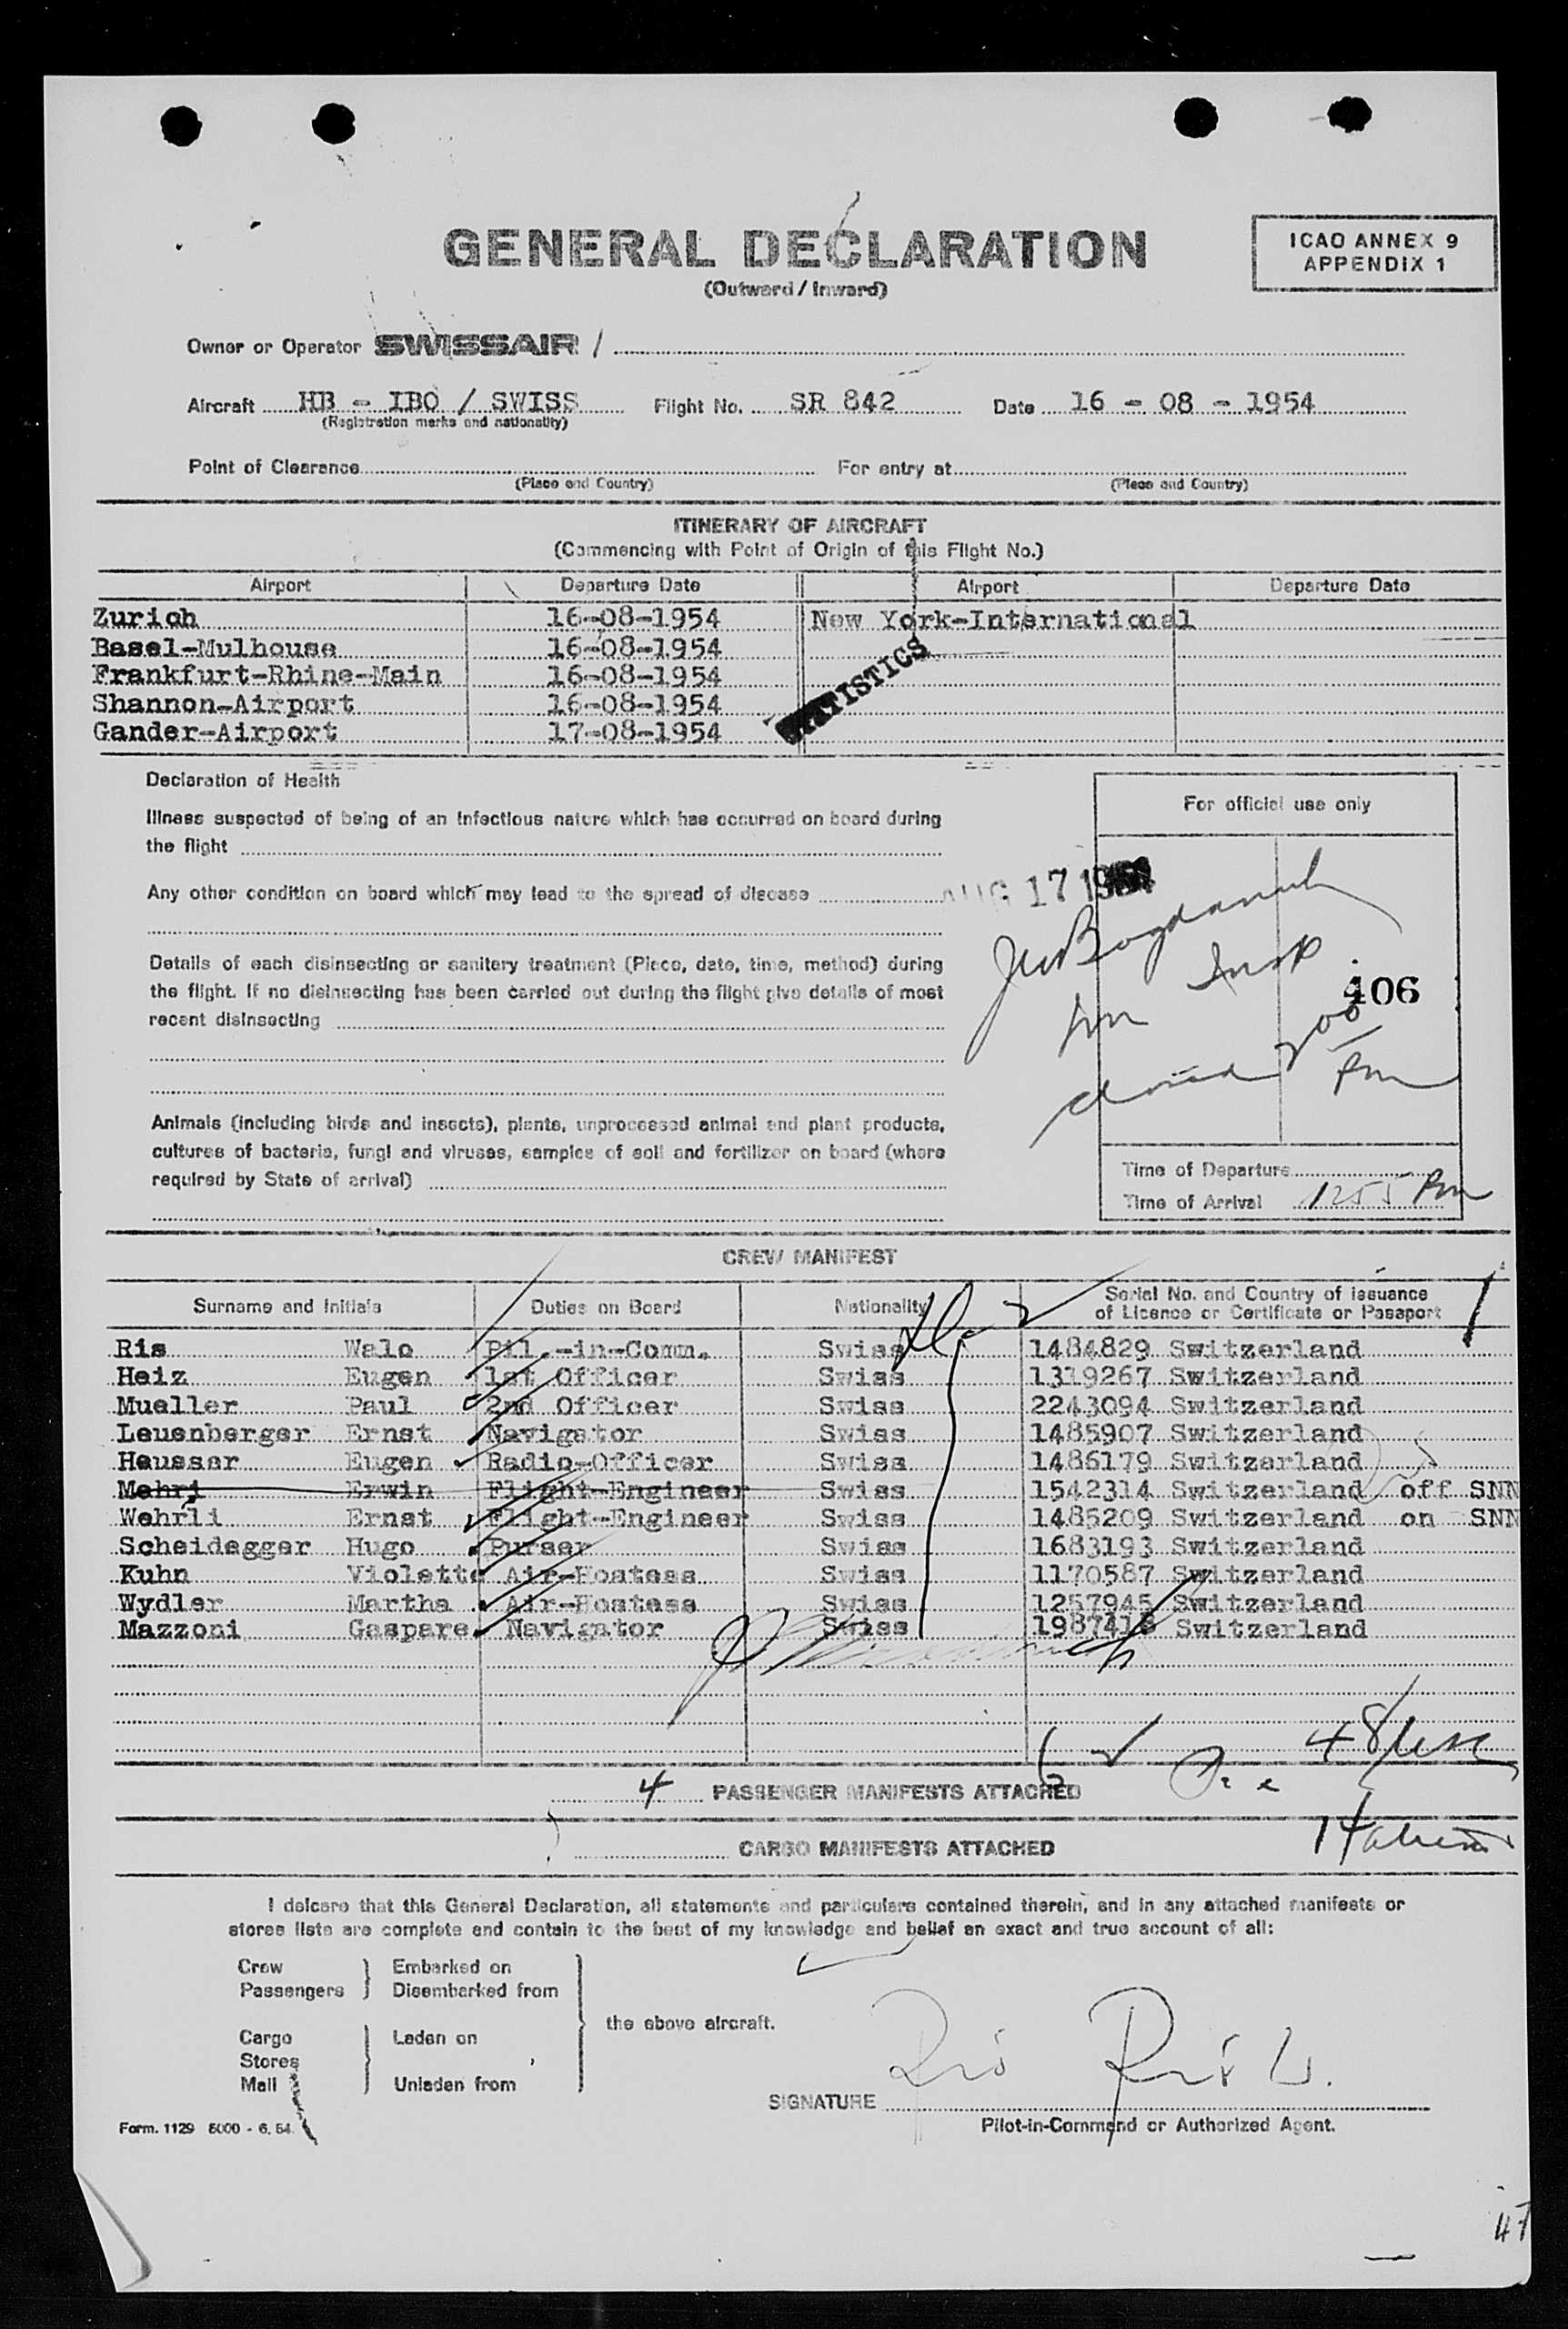 GENERAL DECLARATION
(Outward / Inward)
ICAO ANNEX 9
APPENDIX 1
Owner or Operator SWISSAIR /
Aircraft HB - IBO / SWISS Flight No. SR 842 Date 16 - 08 - 1954
(Registration marks and nationality)
Point of Clearance For entry at
(Place and Country) (Place and Country)
ITINERARY OF AIRCRAFT
(Commencing with Point of Origin of this Flight No.)
Airport Departure Date Airport Departure Date
Zurich 16-08-1954 New York-International
Basel-Mulhouse 16-08-1954
Frankfurt-Rhine-Main 16-08-1954
Shannon-Airport 16-08-1954
Gander-Airport 17-08-1954
STATISTICS
Declaration of Health
Illness suspected of being of an infectious nature which has occurred on board during
the flight
Any other condition on board which may lead to the spread of disease
AUG 17 1954
Details of each disinsecting or sanitary treatment (Place, date, time, method) during
the flight. If no disinsecting has been carried out during the flight give details of most
recent disinsecting
Animals (including birds and insects), plants, unprocessed animal and plant products,
cultures of bacteria, fungi and viruses, samples of soil and fertilizer on board (where
required by State of arrival)
For official use only
406
200
Pm
Time of Departure
Time of Arrival 1255 Pm
CREW MANIFEST
Surname and Initials Duties on Board Nationality Serial No. and Country of issuance
of Licence or Certificate or Passport
Ris Walo Pil.-in-Comm. Swiss 1484829 Switzerland
Heiz Eugen 1st Officer Swiss 1319267 Switzerland
Mueller Paul 2nd Officer Swiss 2243094 Switzerland
Leuenberger Ernst Navigator Swiss 1485907 Switzerland
Heusser Eugen Radio-Officer Swiss 1486179 Switzerland
Mehri Erwin Flight-Engineer Swiss 1542314 Switzerland off SNN
Wehrli Ernst Flight-Engineer Swiss 1485209 Switzerland on SNN
Scheidegger Hugo Purser Swiss 1683193 Switzerland
Kuhn Violette Air-Hostess Swiss 1170587 Switzerland
Wydler Martha Air-Hostess Swiss 1257945 Switzerland
Mazzoni Gaspare Navigator Swiss Switzerland
4 PASSENGER MANIFESTS ATTACHED
CARGO MANIFESTS ATTACHED
I delcare that this General Declaration, all statements and particulars contained therein, and in any attached manifests or
stores lists are complete and contain to the best of my knowledge and belief an exact and true account of all:
Crew Embarked on
Passengers Disembarked from
the above aircraft.
Cargo Laden on
Stores
Mail Unladen from
Ris Ris W.
SIGNATURE
Pilot-in-Command or Authorized Agent.
Form. 1129 5000 - 6. 54.
47